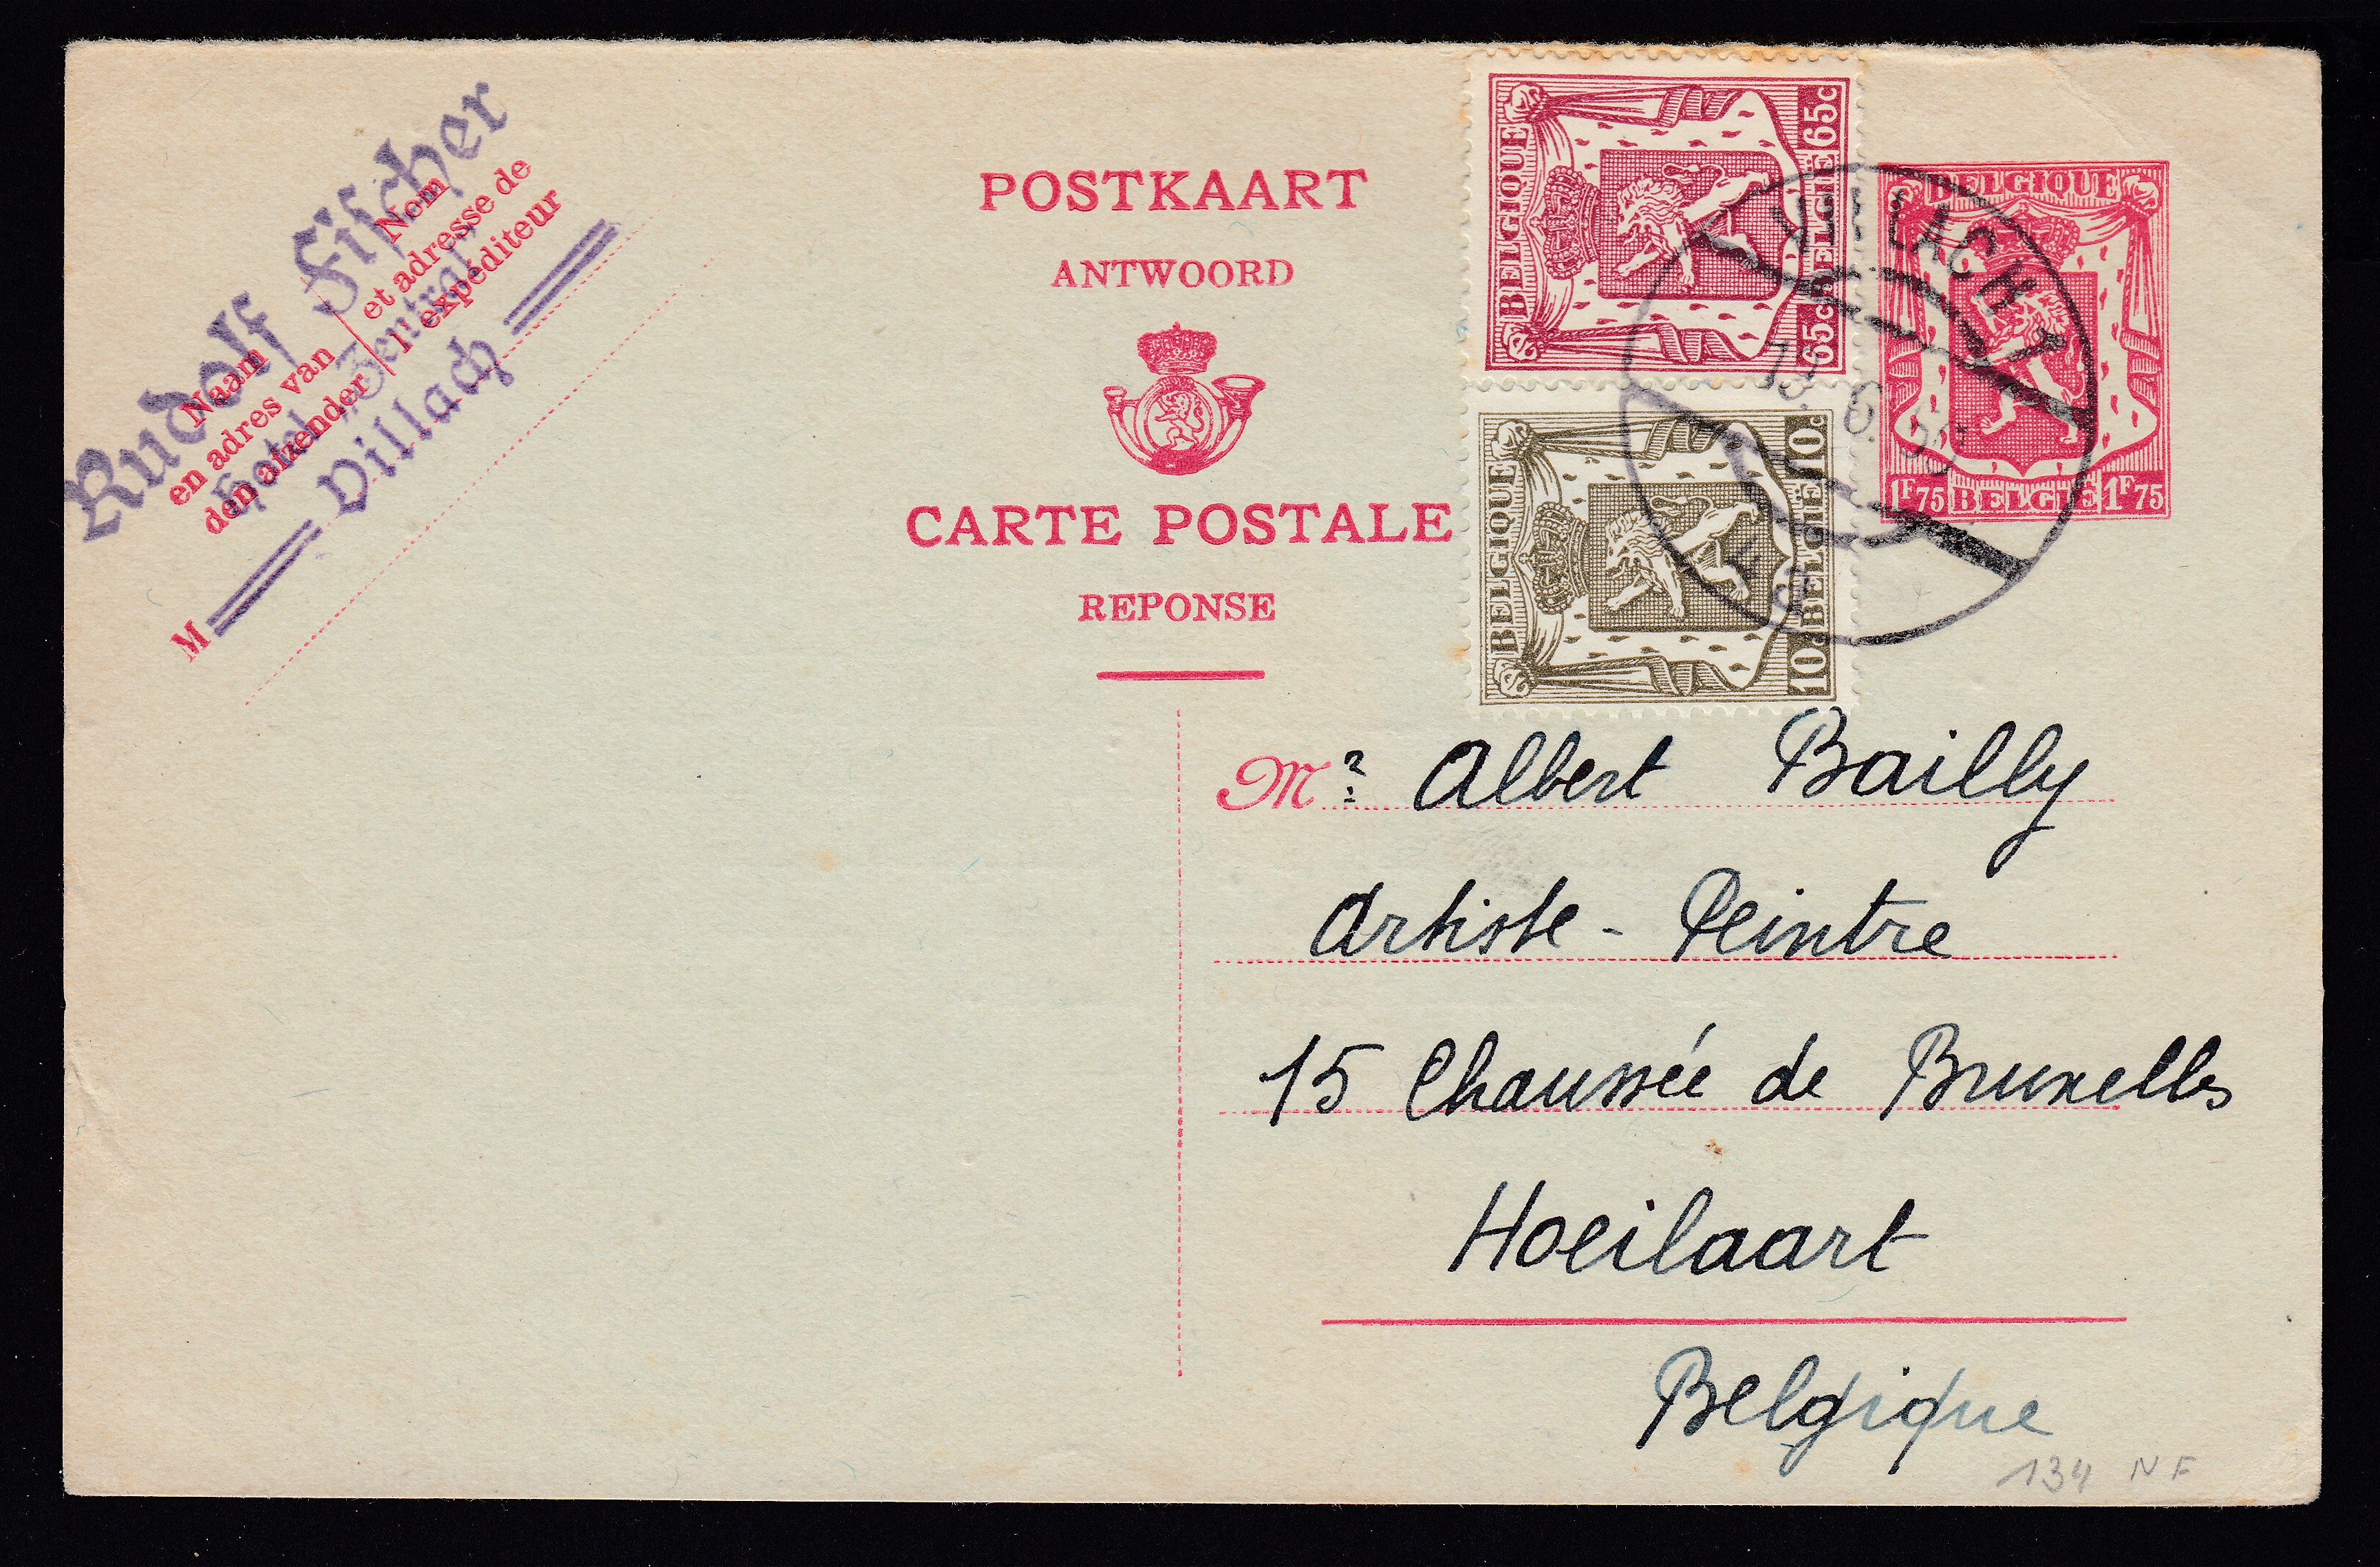 Rudolf Fischer
Hotel „Zentral"
Villach
Naam
en adres van
den afzender
Nom
et adresse de
l'expéditeur
M
POSTKAART
ANTWOORD
CARTE POSTALE
REPONSE
BELGIQUE
65c BELGIË 65c
BELGIQUE
10c BELGIË 10c
BELGIQUE
1F75 BELGIË 1F75
VILLACH 1
6.
Mr Albert Bailly
Artiste - Peintre
15 Chaussée de Bruxelles
Hoeilaart
Belgique
134 NF